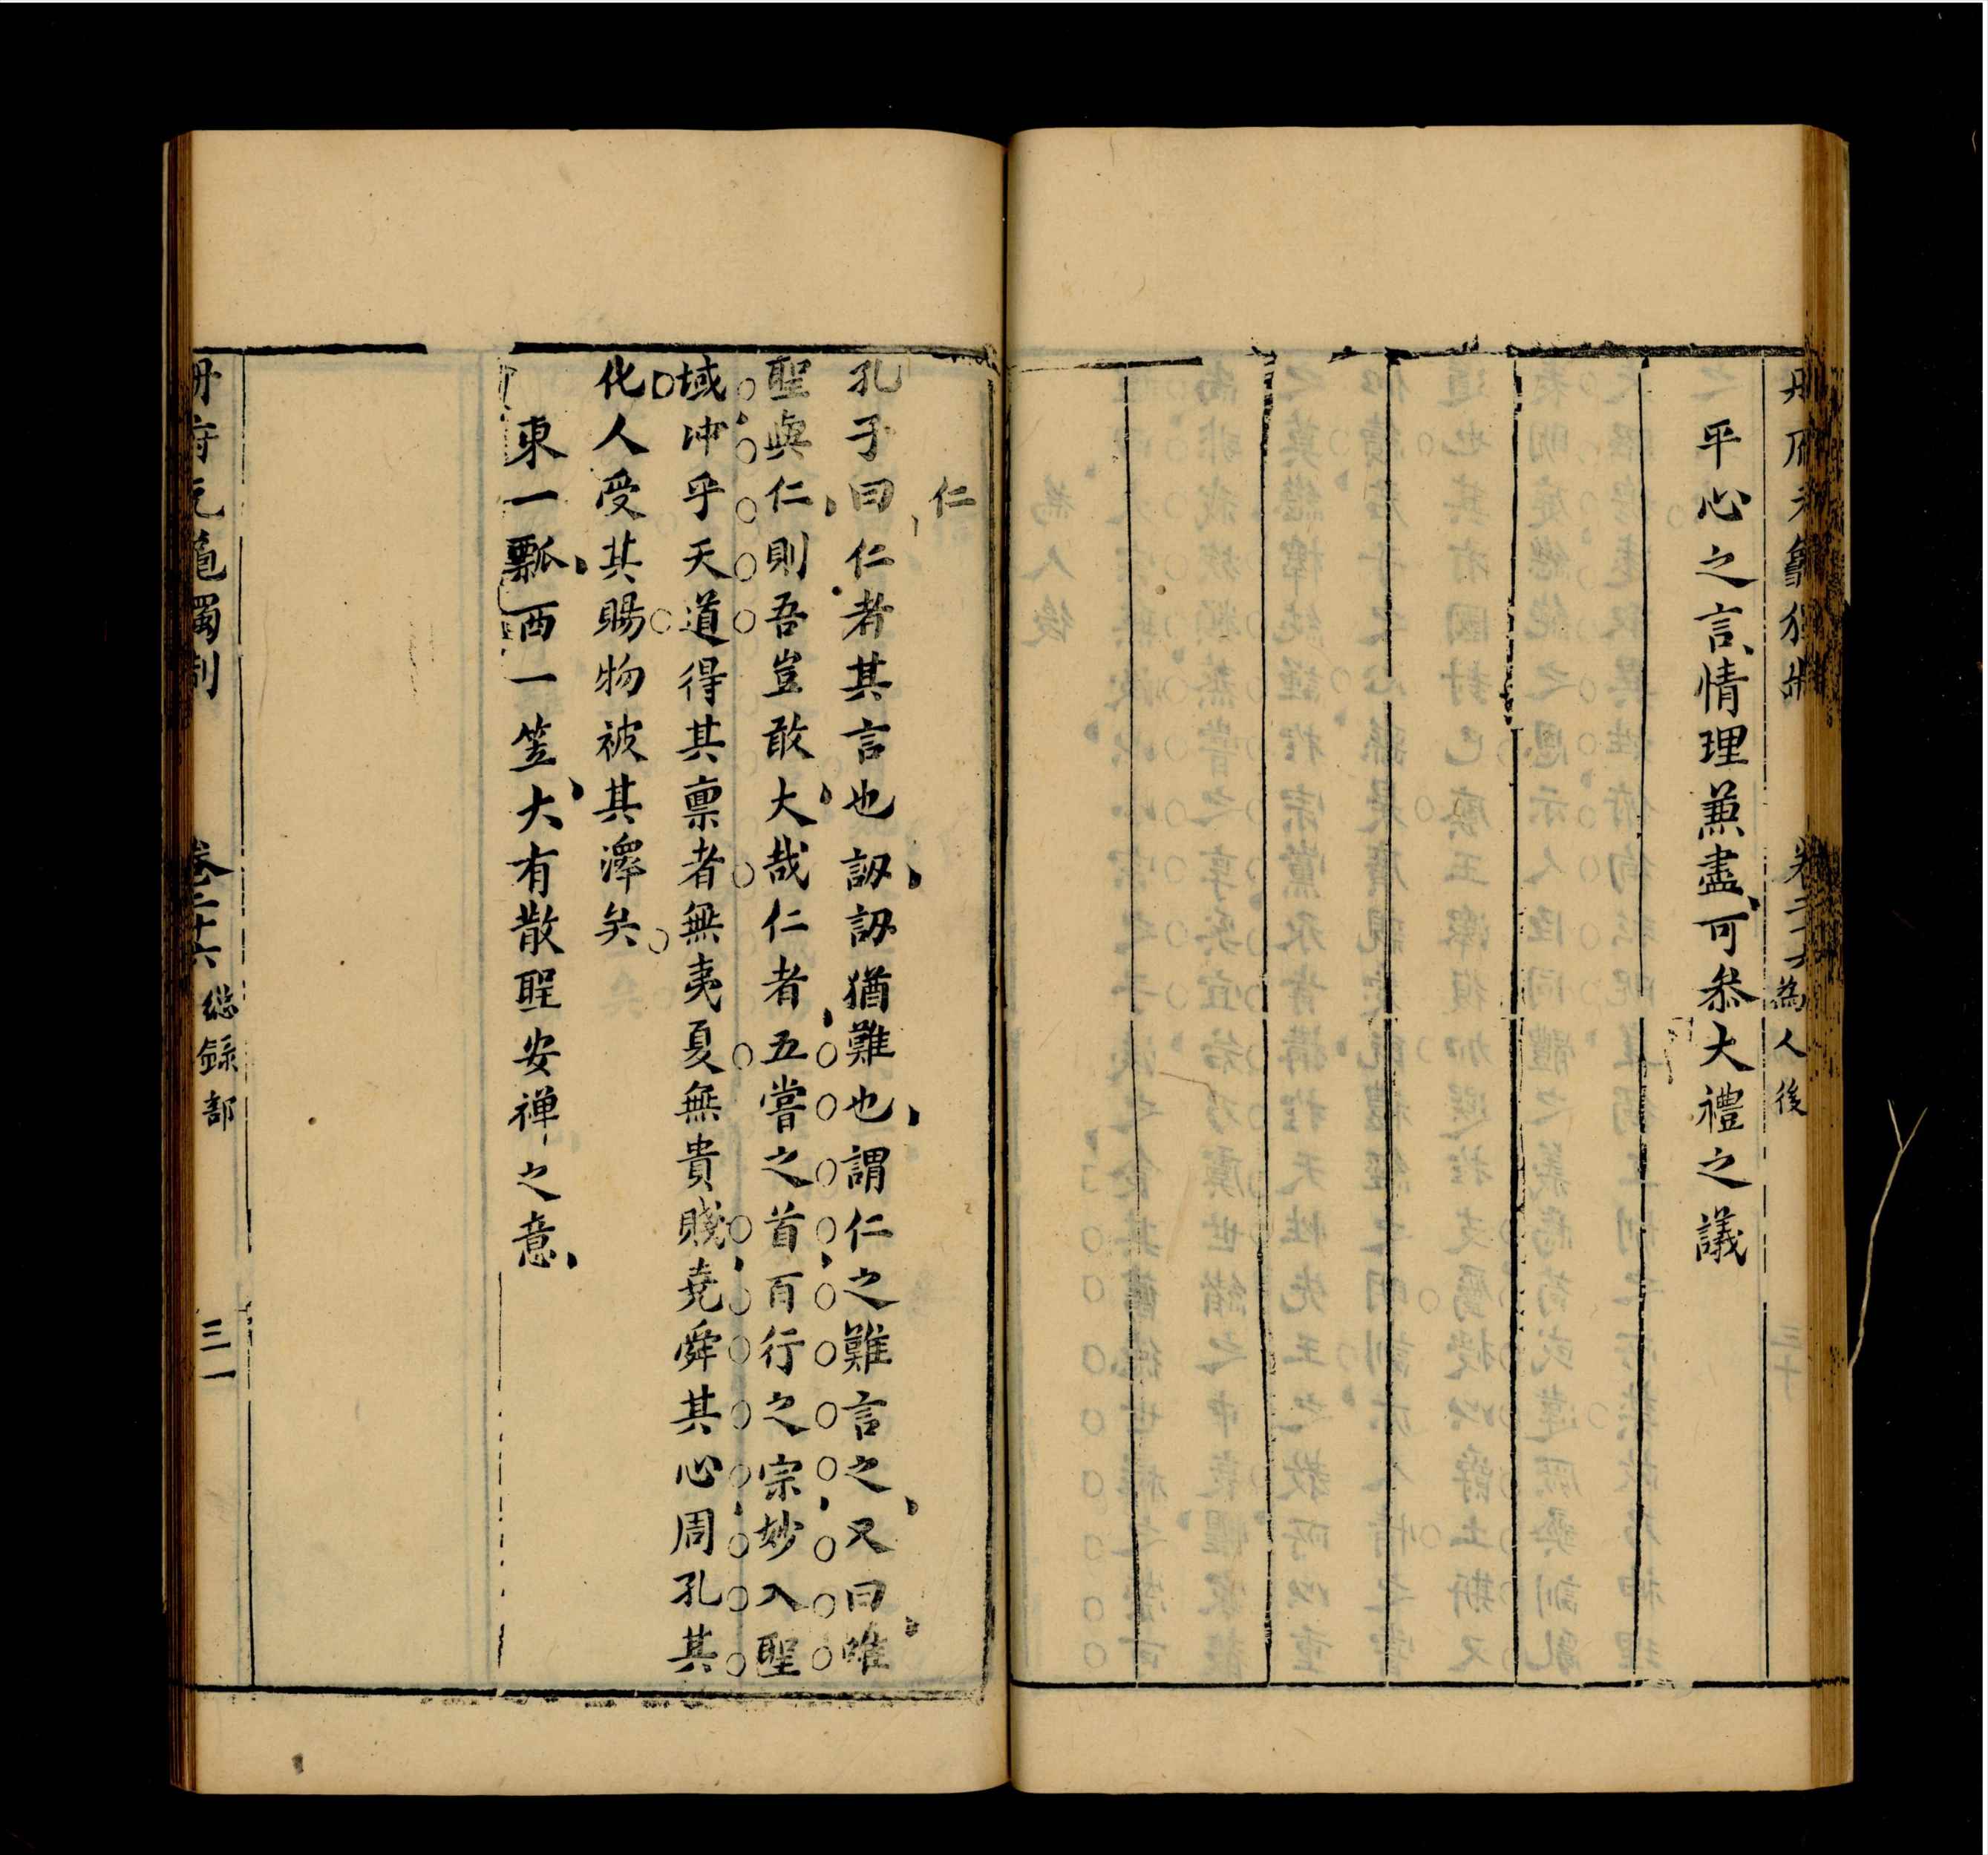 冊府元龜獨制 卷二十六 為人後 三十
平心之言情理兼盡可叅大禮之議
仁
孔子曰仁者其言也訒訒猶難也謂仁之難言之又曰唯
聖與仁則吾豈敢大哉仁者五嘗之首百行之宗妙入聖
域冲乎天道得其禀者無夷夏無貴賤堯舜其心周孔其
化人受其賜物被其澤矣
東一瓢西一笠大有散聖安禅之意
冊府元龜獨制 卷二十六 総録部 三一